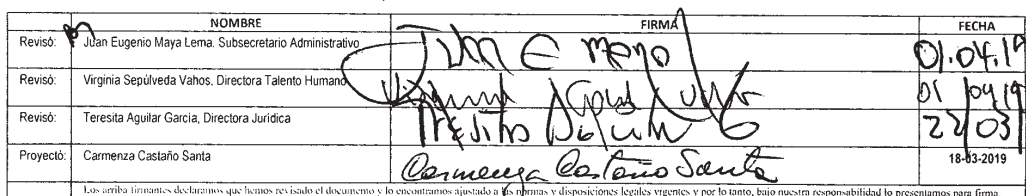 NOMBRE FIRMA FECHA
Revisó: Juan Eugenio Maya Lema. Subsecretario Administrativo Juan E Maya 01.04.19
Revisó: Virginia Sepúlveda Vahos, Directora Talento Humano 01/04/19
Revisó: Teresita Aguilar Garcia, Directora Jurídica Teresita Aguilar G 22/03
Proyectó: Carmenza Castaño Santa Carmenza Castaño Santa 18-03-2019
Los arriba firmantes declaramos que hemos revisado el documento y lo encontramos ajustado a las normas y disposiciones legales vigentes y por lo tanto, bajo nuestra responsabilidad lo presentamos para firma